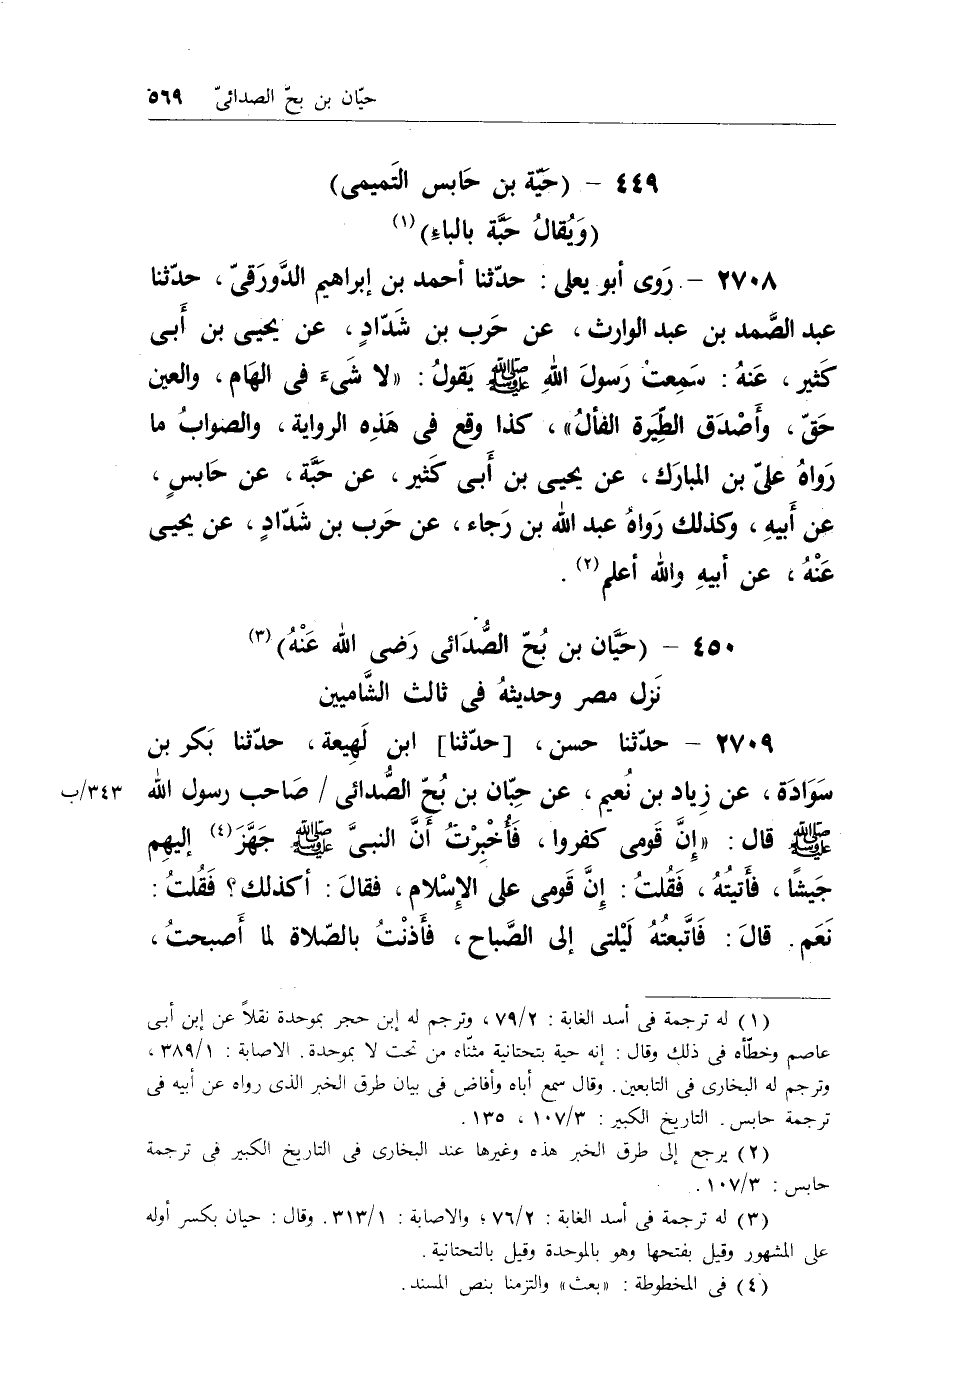 حيّان بن بحّ الصدائىّ ٥٦٩
٤٤٩ – (حَيّة بن حَابس التَميمى)
(وَيُقالُ حَبَّة بالباءِ)(١)
٢٧٠٨ – رَوى أبو يعلى : حدّثنا أحمد بن إبراهيم الدَّورَقىّ ، حدّثنا
عبد الصَّمد بن عبد الوارث ، عن حَرب بن شَدّادٍ ، عن يحيى بن أَبى
كثير ، عَنهُ : سَمِعتْ رَسولَ اللهِ ﷺ يَقولُ : «لا شىءَ فى الهَام ، والعين
حَقّ ، وأَصْدَق الطِّيَرة الفَألُ» ، كذا وقع فى هَذِه الرواية ، والصوابُ ما
رَواهُ علىّ بن المبارك ، عن يحيى بن أَبى كَثير ، عن حَبَّة ، عن حَابسٍ ،
عن أَبيهِ ، وكذلك رَواهُ عبد الله بن رَجاء ، عن حَرب بن شَدّادٍ ، عن يحيى
عَنْهُ ، عن أبيهِ والله أعلم(٢) .
٤٥٠ – (حَيَّان بن بُحّ الصُّدَائى رَضى الله عَنْهُ)(٣)
نَزل مصر وحديثهُ فى ثالث الشَّاميين
٢٧٠٩ – حدّثنا حسن ، [حدّثنا] ابن لَهِيعة ، حدّثنا بَكر بن
سَوَادَة ، عن زِياد بن نُعيم ، عن حِبّان بن بُحّ الصُّدائى / صَاحب رسول الله ٣٤٣/ب
ﷺ قال : «إنَّ قومى كفروا ، فَأُخْبِرْتُ أنَّ النبىَّ ﷺ جَهَّزَ(٤) إليهِم
جَيشًا ، فأَتيتُهُ ، فَقُلتُ : إنَّ قَومى على الإسْلام ، فقالَ : أكذلك؟ فَقُلتُ :
نَعَم . قالَ : فَاتَّبعتُهُ لَيْلتى إلى الصَّباح ، فأَذنْتُ بالصَّلاة لما أَصبحتُ ،
(١) له ترجمة فى أسد الغابة : ٧٩/٢ ، وترجم له إبن حجر بموحدة نقلاً عن إبن أبى
عاصم وخطّأه فى ذلك وقال : إنه حية بتحتانية مثنّاه من تحت لا بموحدة . الاصابة : ٣٨٩/١ ،
وترجم له البخارى فى التابعين . وقال سمع أباه وأفاض فى بيان طرق الخبر الذى رواه عن أبيه فى
ترجمة حابس . التاريخ الكبير : ١٠٧/٣ ، ١٣٥ .
(٢) يرجع إلى طرق الخبر هذه وغيرها عند البخارى فى التاريخ الكبير فى ترجمة
حابس : ١٠٧/٣ .
(٣) له ترجمة فى أسد الغابة : ٧٦/٢ ؛ والاصابة : ٣١٣/١ . وقال : حيان بكسر أوله
على المشهور وقيل بفتحها وهو بالموحدة وقيل بالتحتانية .
(٤) فى المخطوطة : «بعث» والتزمنا بنص المسند .